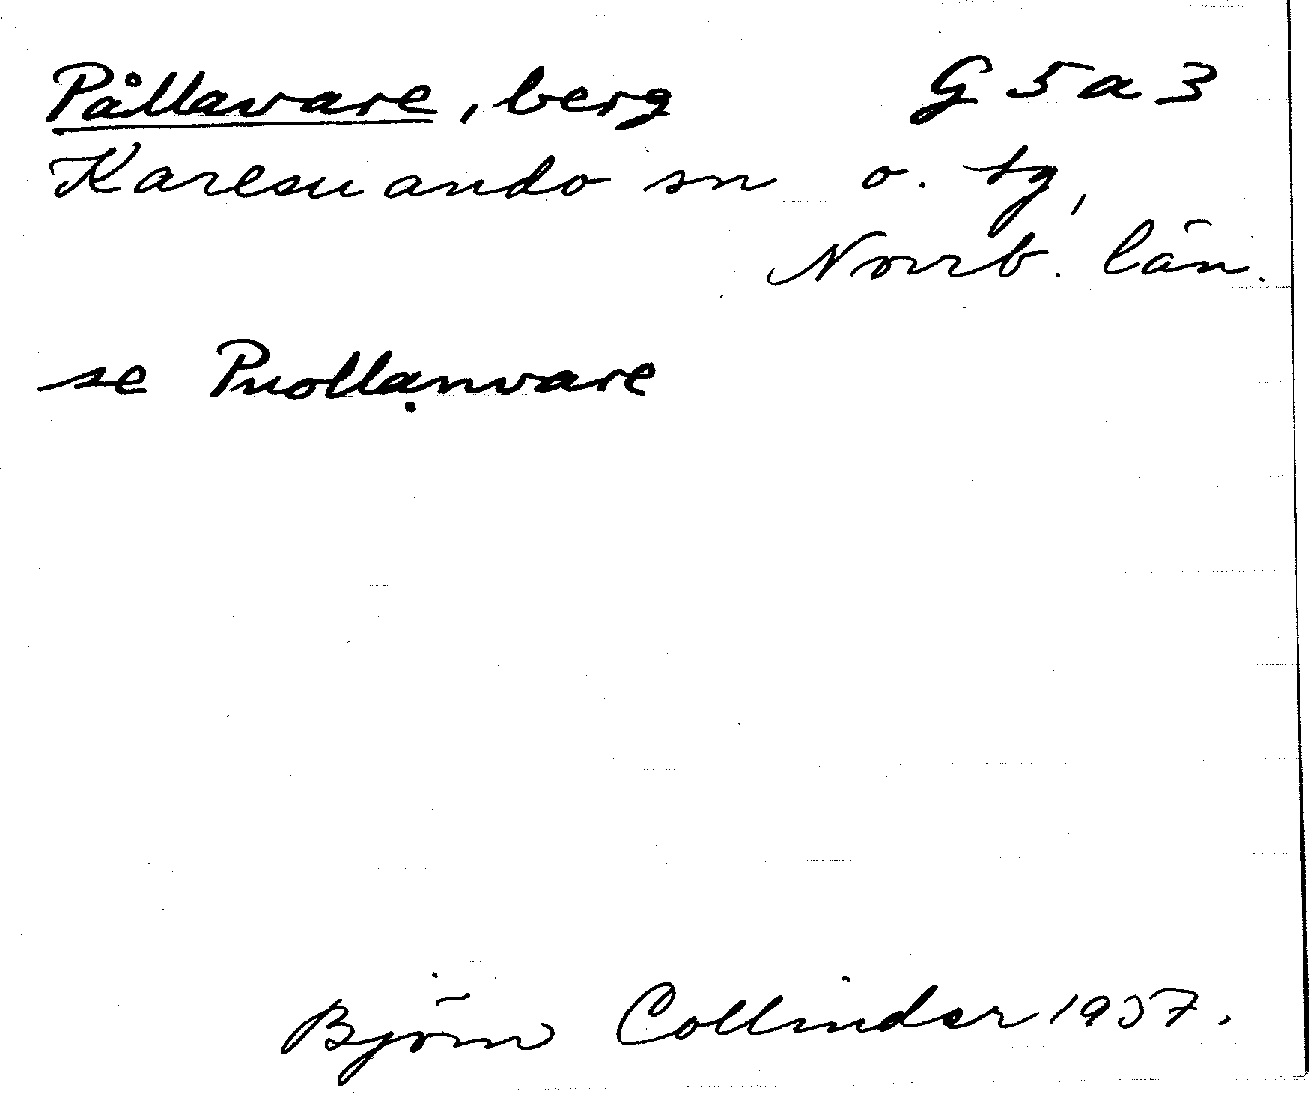 Pållavare, berg G 5 a 3
Karesuando sn o. tg,
Norrb. län.
se Puollạnvare
Björn Collinder 1957.